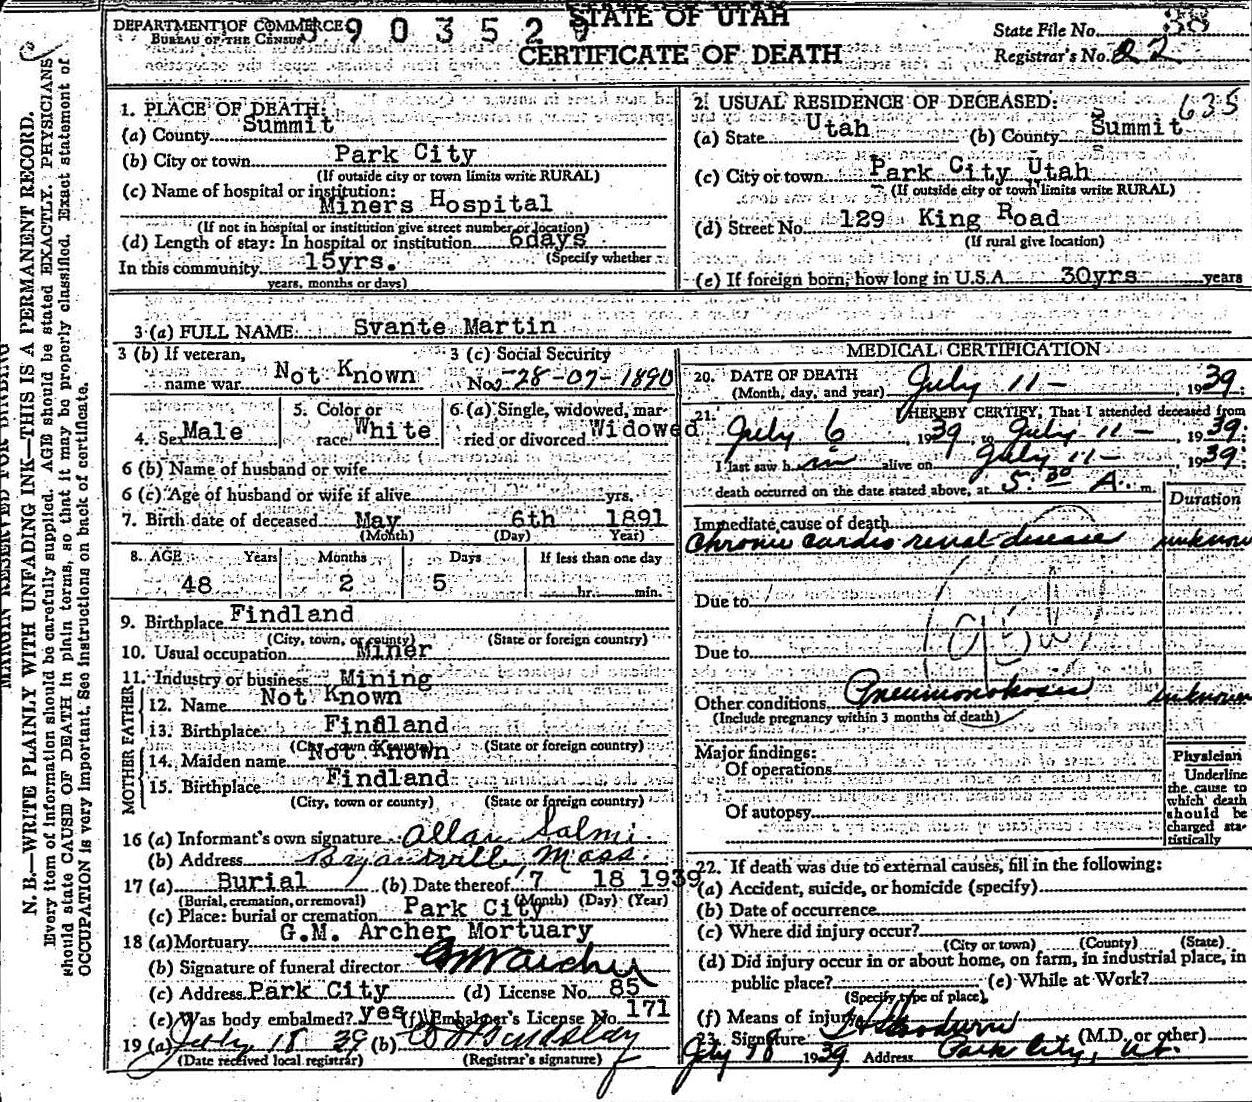 DEPARTMENT OF COMMERCE
BUREAU OF THE CENSUS
390352
STATE OF UTAH
CERTIFICATE OF DEATH
State File No. 38
Registrar's No. 22
MARGIN RESERVED FOR BINDING
N. B.—WRITE PLAINLY WITH UNFADING INK—THIS IS A PERMANENT RECORD.
Every item of information should be carefully supplied. AGE should be stated EXACTLY. PHYSICIANS
should state CAUSE OF DEATH in plain terms, so that it may be properly classified. Exact statement of
OCCUPATION is very important. See instructions on back of certificate.
1. PLACE OF DEATH:
(a) County Summit
(b) City or town Park City
(If outside city or town limits write RURAL)
(c) Name of hospital or institution:
Miners Hospital
(If not in hospital or institution give street number or location)
(d) Length of stay: In hospital or institution 6days
(Specify whether
In this community 15yrs.
years, months or days)
2. USUAL RESIDENCE OF DECEASED: 635
(a) State Utah (b) County Summit
(c) City or town Park City Utah
(If outside city or town limits write RURAL)
(d) Street No. 129 King Road
(If rural give location)
(e) If foreign born, how long in U.S.A. 30yrs years
3 (a) FULL NAME Svante Martin
3 (b) If veteran,
name war Not Known
3 (c) Social Security
No. 528-07-1890
4. Sex Male
5. Color or
race White
6. (a) Single, widowed, mar-
ried or divorced Widowed
6 (b) Name of husband or wife
6 (c) Age of husband or wife if alive yrs.
7. Birth date of deceased May 6th 1891
(Month) (Day) Year)
8. AGE Years Months Days If less than one day
48 2 5 hr. min.
9. Birthplace Findland
(City, town, or county) (State or foreign country)
10. Usual occupation Miner
11. Industry or business Mining
FATHER
12. Name Not Known
13. Birthplace Findland
(City, town or county) (State or foreign country)
MOTHER
14. Maiden name Not Known
15. Birthplace Findland
(City, town or county) (State or foreign country)
16 (a) Informant's own signature Allan Salmi
(b) Address Bryantville, Mass.
17 (a) Burial (b) Date thereof 7 18 1939
(Burial, cremation, or removal) (Month) (Day) (Year)
(c) Place: burial or cremation Park City
18 (a) Mortuary G.M. Archer Mortuary
(b) Signature of funeral director GM Archer
(c) Address Park City (d) License No. 85
(e) Was body embalmed? yes (f) Embalmer's License No. 171
19 (a) July 18 39 (b)
(Date received local registrar) (Registrar's signature)
MEDICAL CERTIFICATION
20. DATE OF DEATH
(Month, day, and year) July 11- , 1939
21. I HEREBY CERTIFY, That I attended deceased from
July 6, 1939, to July 11-, 1939:
I last saw him alive on July 11-, 1939:
death occurred on the date stated above, at 5:30 A. m.
Duration
Immediate cause of death
Chronic cardio renal disease unknown
Due to
Due to
Other conditions Pneumonokosis unknown
(Include pregnancy within 3 months of death)
Major findings:
Of operations
Of autopsy
Physician
Underline
the cause to
which death
should be
charged sta-
tistically
22. If death was due to external causes, fill in the following:
(a) Accident, suicide, or homicide (specify)
(b) Date of occurrence
(c) Where did injury occur?
(City or town) (County) (State)
(d) Did injury occur in or about home, on farm, in industrial place, in
public place? (e) While at Work?
(Specify type of place)
(f) Means of injury
23. Signature (M.D. or other)
July 18 1939 Address Park City, Ut.